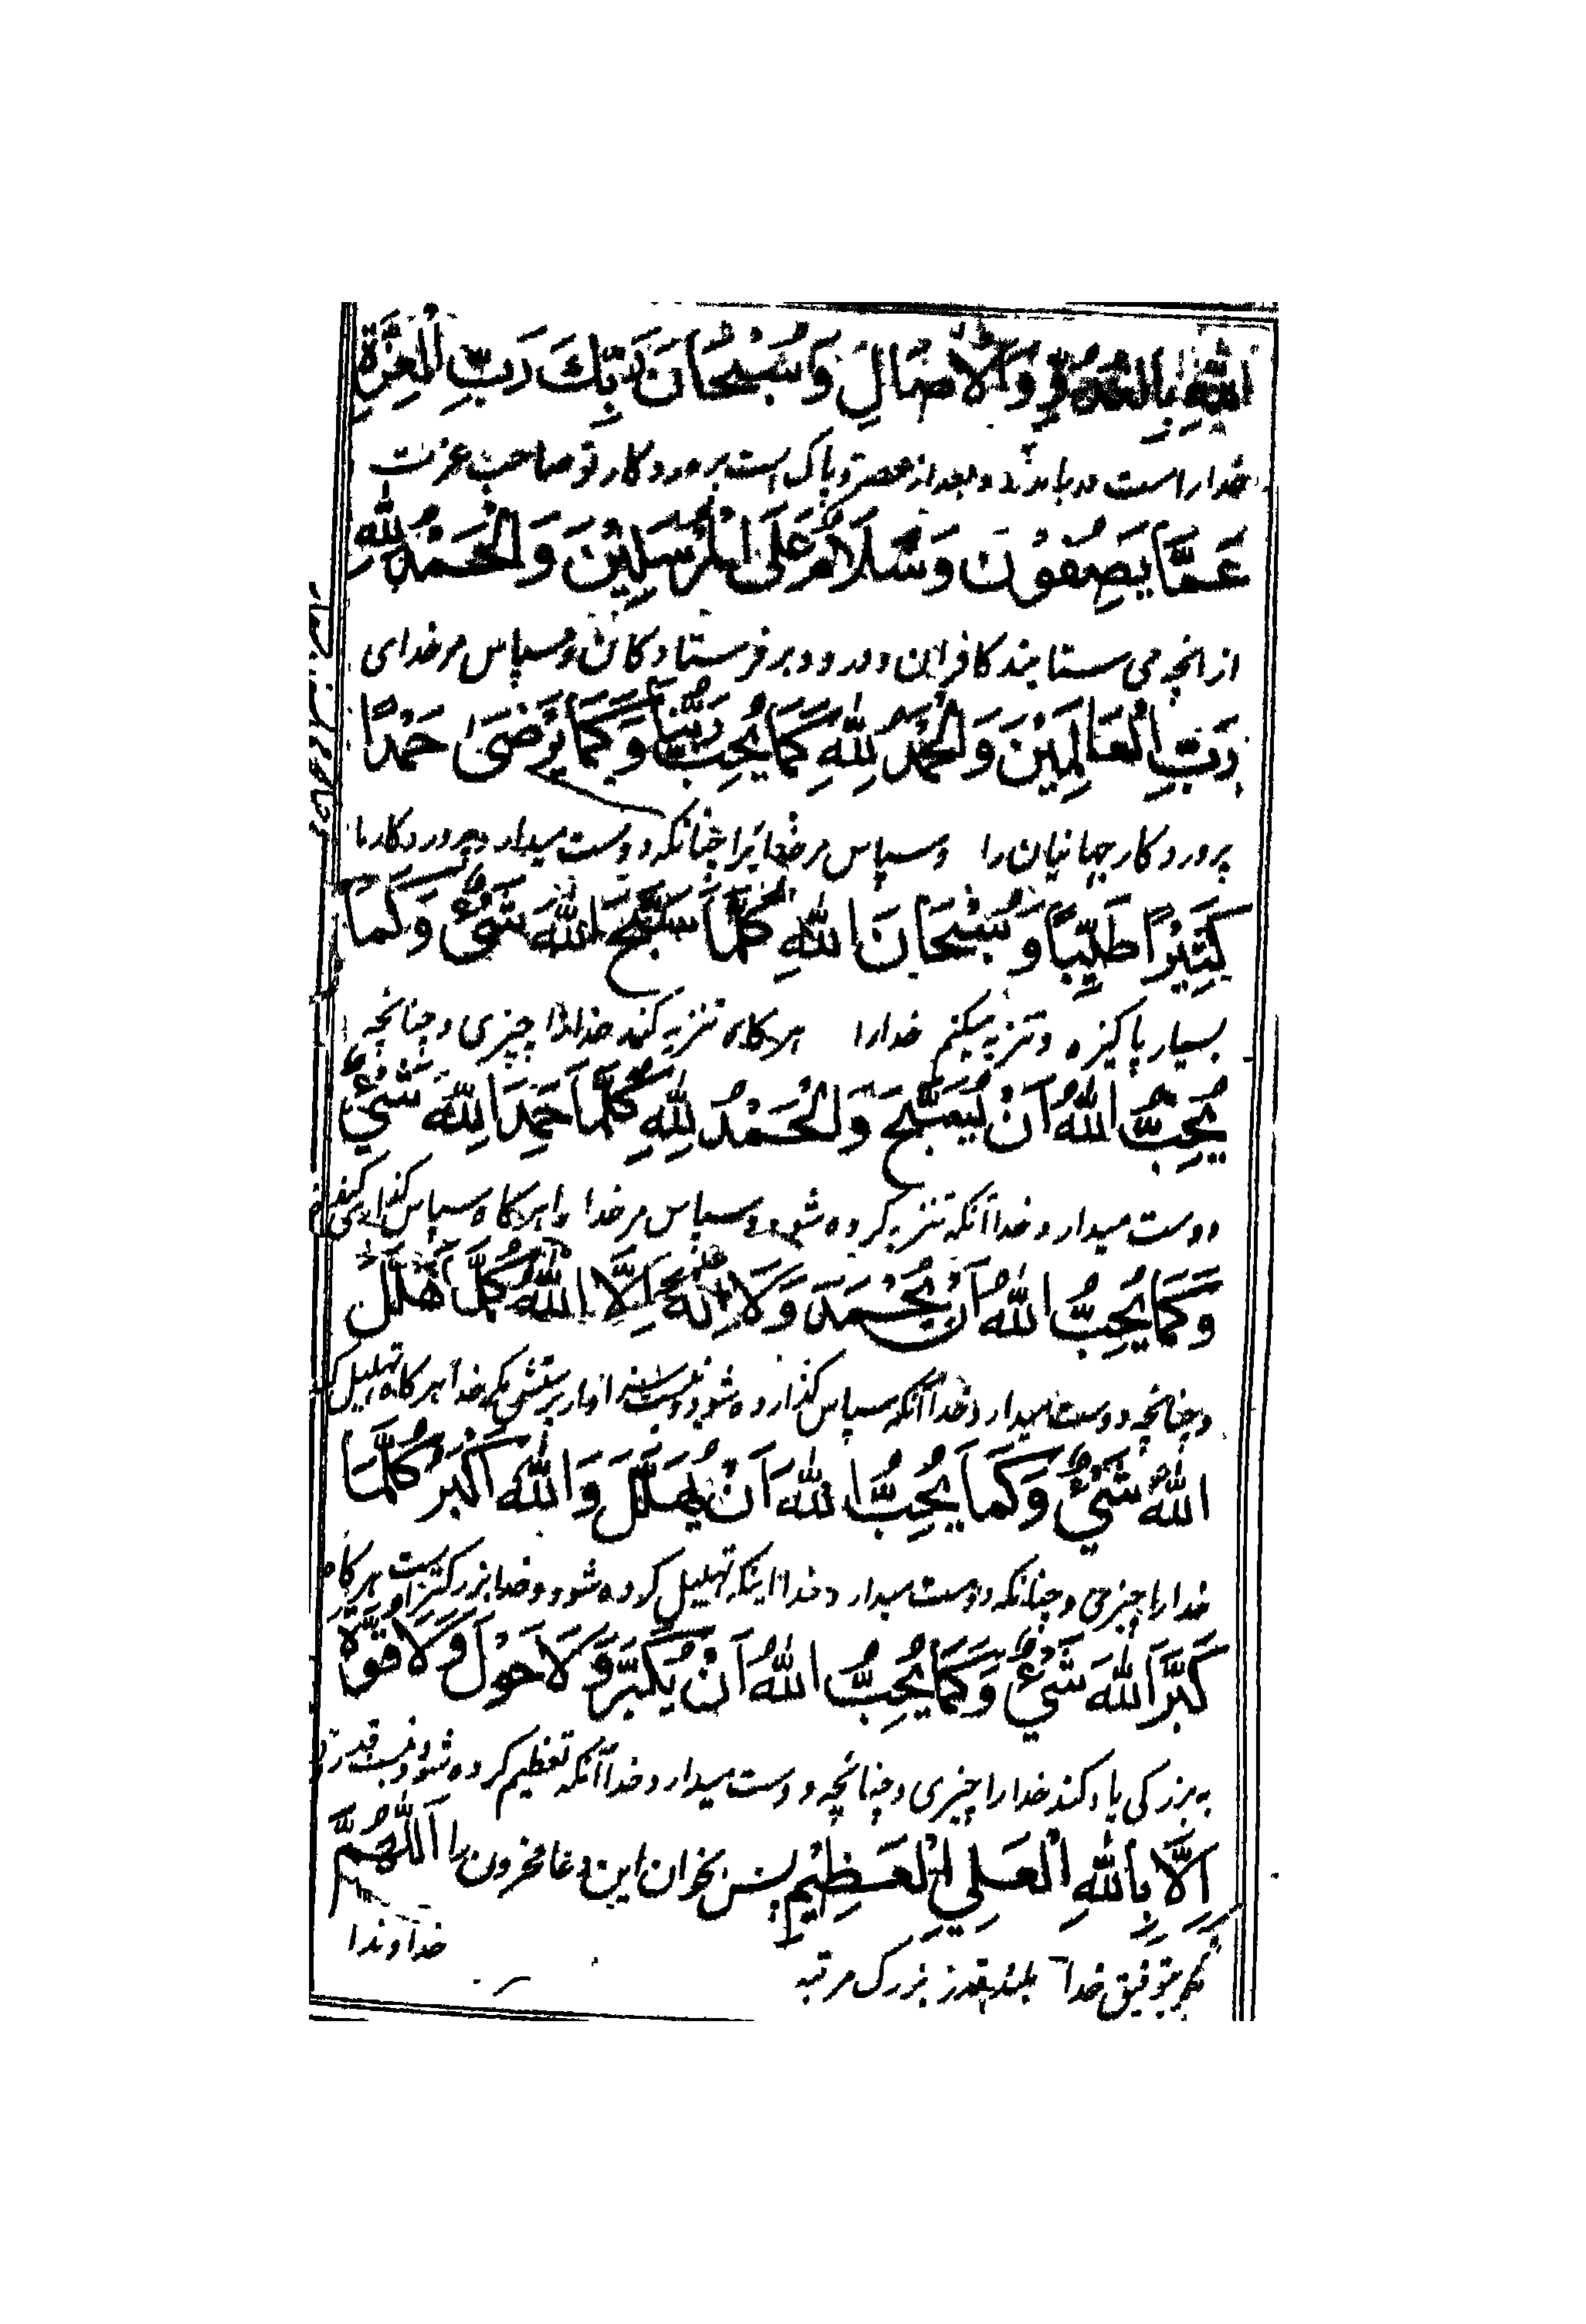 اللهِ بِالْغُدُوِّ وَالْاٰصَالِ وَسُبْحَانَ رَبِّكَ رَبِّ الْعِزَّةِ
خداراست و بعد از عصر و پاک است پروردکار تو صاحب عزت
عَمَّا يَصِفُوْنَ وَسَلَامٌ عَلَى الْمُرْسَلِيْنَ وَالْحَمْدُ لِلّٰهِ
از انچه می ستایند کافران و درود بر فرستادکان و سپاس مر خدای
رَبِّ الْعَالَمِيْنَ وَالْحَمْدُ لِلّٰهِ كَمَا يُحِبُّ رَبُّنَا وَكَمَا يَرْضَىٰ حَمْدًا
پروردکار جهانیان را و سپاس مر خدایرا چنانکه دوست میدارد پروردکار ما
كَثِيْرًا طَيِّبًا وَسُبْحَانَ اللهِ كُلَّمَا سَبَّحَ اللهَ شَيْءٌ وَكَمَا
بسیار پاکیزه و تنزیه میکنم خدارا هرکاه تنزیه کند خدارا چیزی و چنانچه
يُحِبُّ اللهُ اَنْ يُسَبَّحَ وَالْحَمْدُ لِلّٰهِ كُلَّمَا حَمِدَ اللهَ شَيْءٌ
دوست میدارد خدا آنکه تنزیه کرده شود و سپاس مر خدا را هرکاه سپاس کند
وَكَمَا يُحِبُّ اللهُ اَنْ يُحْمَدَ وَلَا اِلٰهَ اِلَّا اللهُ كُلَّمَا هَلَّلَ
و چنانچه دوست میدارد خدا آنکه سپاس کذارده شود و نیست سزاوار پرستش مکر خدا هرکاه تهلیل
اللهَ شَيْءٌ وَكَمَا يُحِبُّ اللهُ اَنْ يُهَلَّلَ وَاللهُ اَكْبَرُ كُلَّمَا
خدا را چیزی و چنانکه دوست میدارد خدا اینکه تهلیل کرده شود و خدا بزرکتر است هرکاه
كَبَّرَ اللهَ شَيْءٌ وَكَمَا يُحِبُّ اللهُ اَنْ يُكَبَّرَ وَلَا حَوْلَ وَلَا قُوَّةَ
به بزرکی یاد کند خدا را چیزی و چنانچه دوست میدارد خدا آنکه تعظیم کرده شود و نیست قدرت
اِلَّا بِاللهِ الْعَلِيِّ الْعَظِيْمِ پس بخوان این دعا مخزون را اَللّٰهُمَّ
خداوندا
مکر بتوفیق خدا بلند قدر بزرک مرتبه